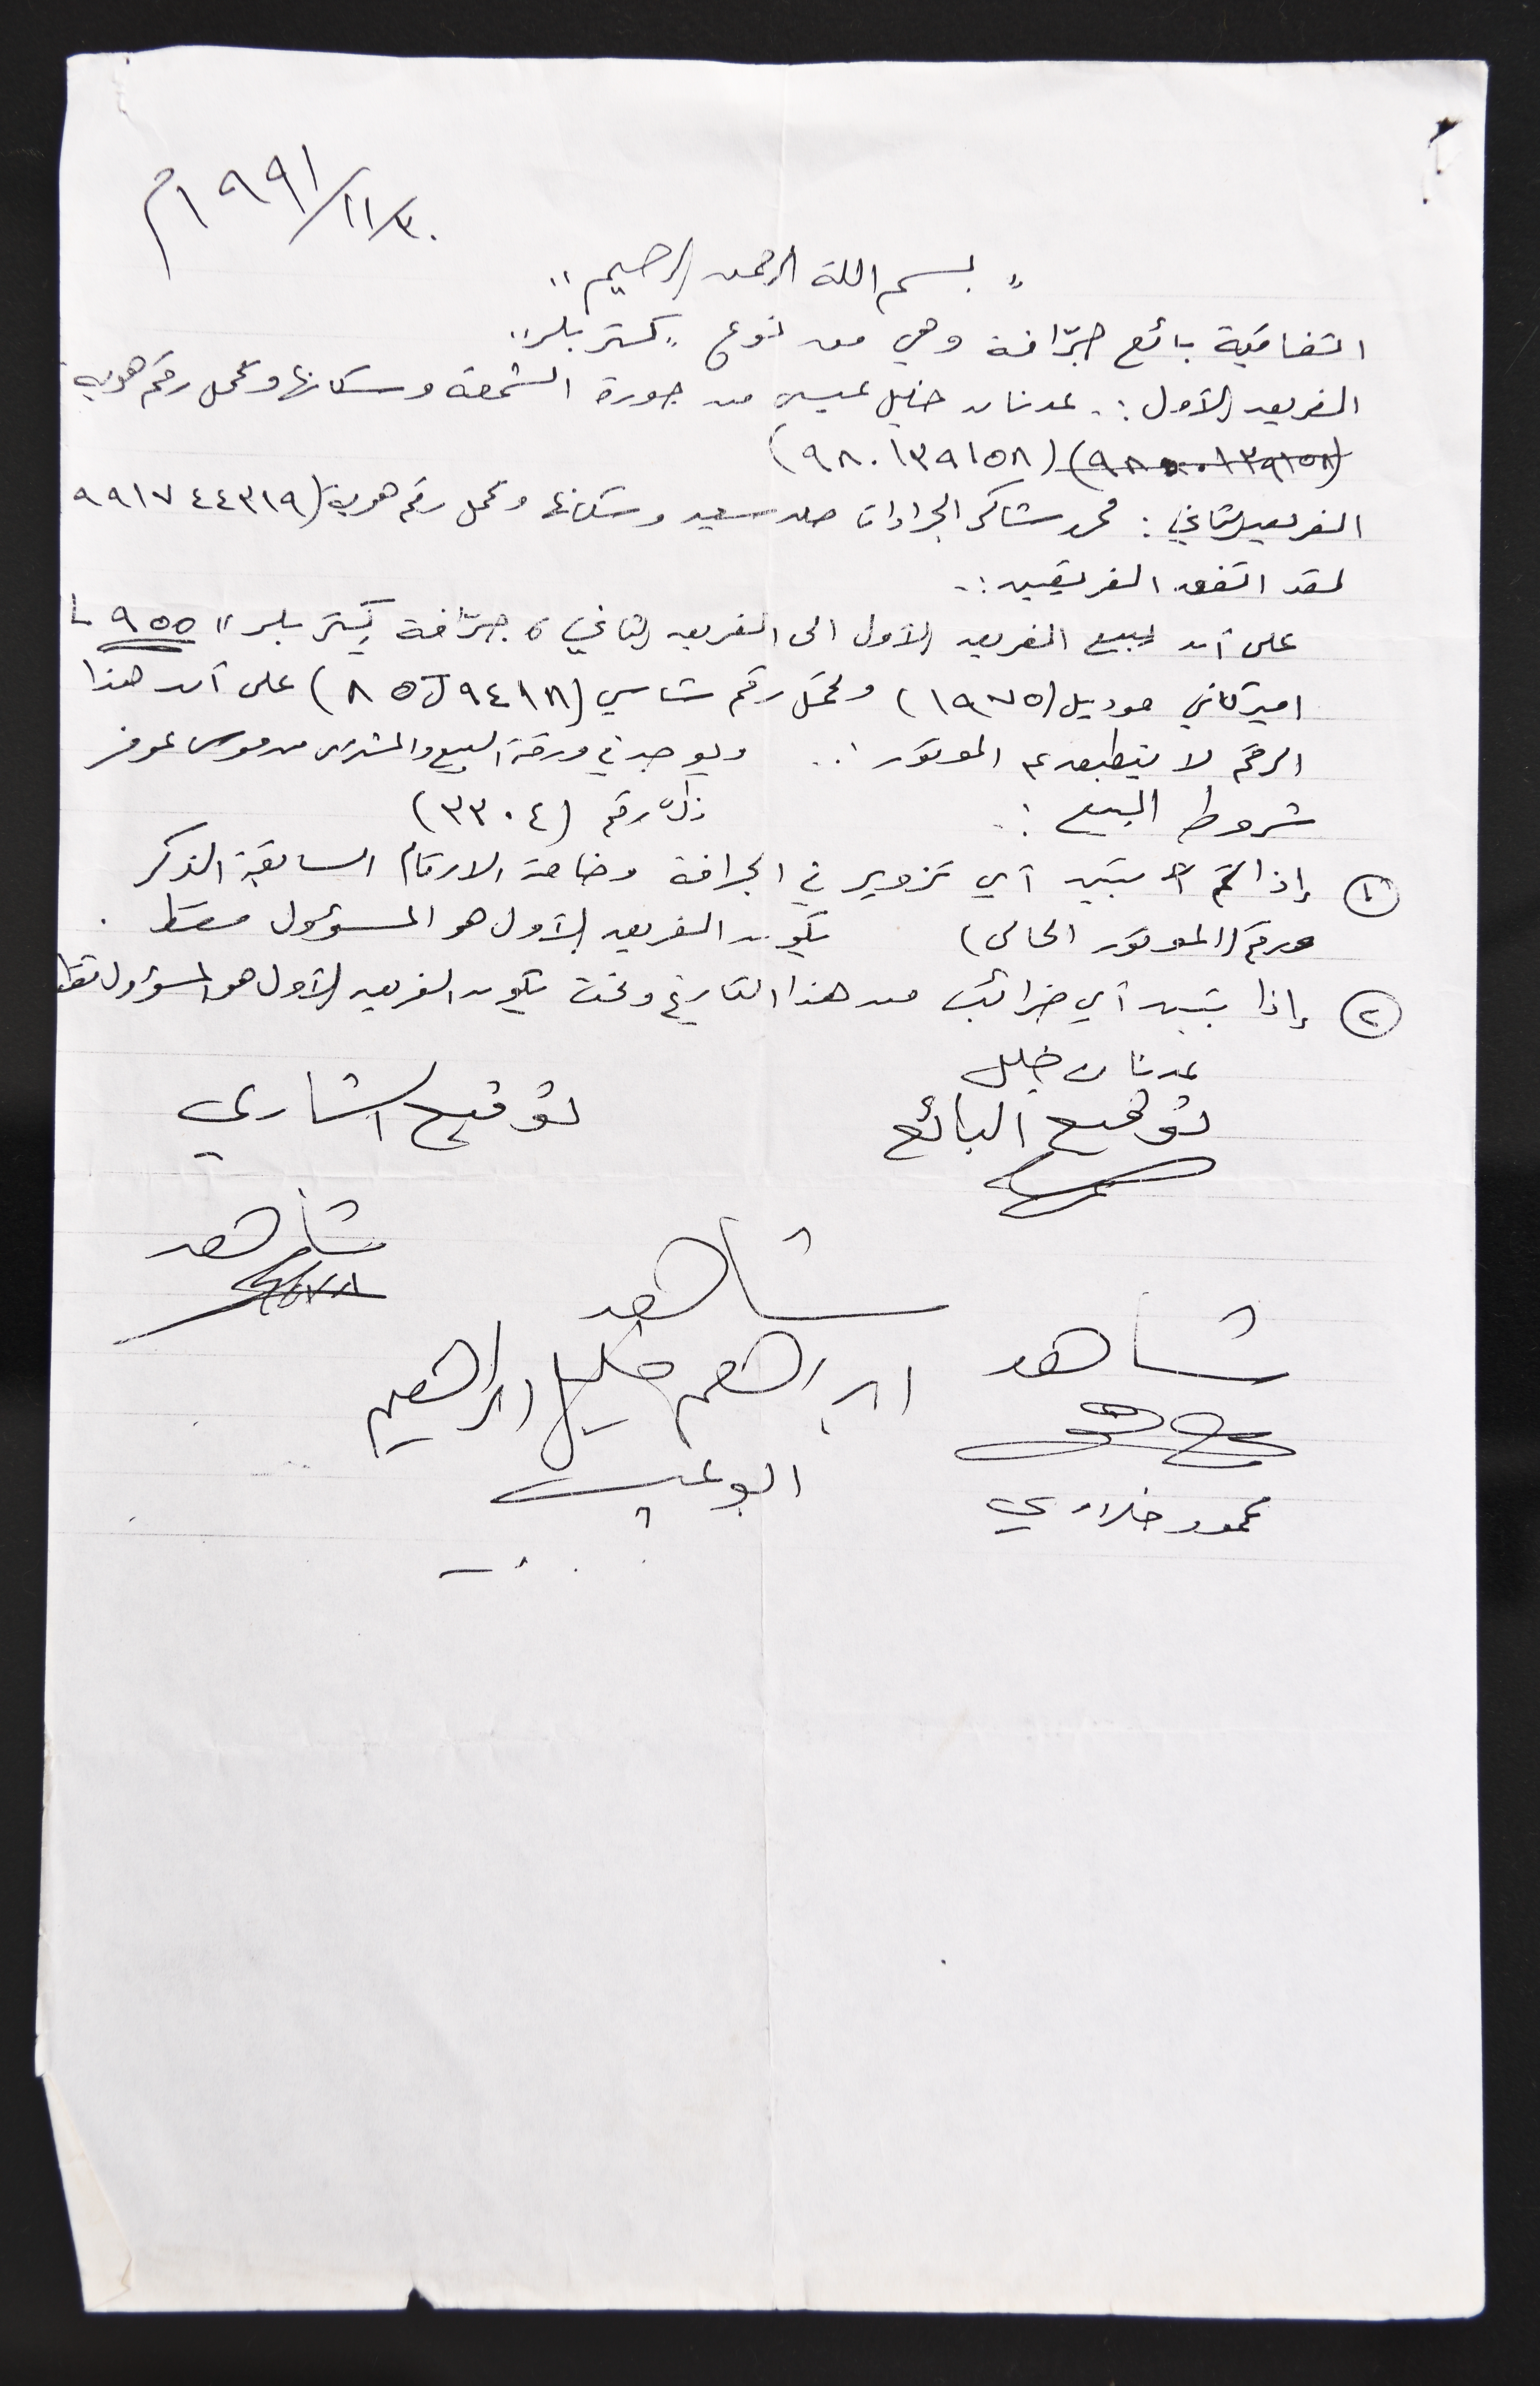 ١٩٩١/١١/٣٠م
" بسم اللة الرحمن الرحيم "
اتفاقية بائع جرّافة وهي من نوع "كتربلر"
الفريق الأول :. عدنان خليل عيسى من جورة الشمعة وسكانها ويحمل رقم هوية
(٩٨٠١٣٩١٥٨) (٩٨٠١٣٩١٥٨)
الفريق الثاني : محمد شاكر الجرادات من سعير وسكانها ويحمل رقم هوية (٩٩١٧٤٤٣١٩
لقد اتفق الفريقين :.
على أن يبيع الفريق الأول الى الفريق الثاني ، جرّافة كتربلر " ٩٥٥ L
اميركاني موديل (١٩٧٥) وتحمل رقم شاسي (٨٥J٩٤١٨) على أن هذا
الرقم لا ينطبق على الموتور :. ويوجد في ورقة البيع والمشترى من موسى عوفر
ذلك رقم (٣٣٠٤)
شروط البيع :.
① إذا تبين أي تزوير في الجرافة وخاصة الارقام السابقة الذكر
ورقم (الموتور الحالي) يكون الفريق الأول هو المسؤول فقط .
② إذا تبين أي ضرائب من هذا التاريخ وتحت يكون الفريق الأول هو المسؤول فقط
عدنان خليل
توقيع البائع
توقيع الشاري
شاهد
شاهد
ابراهيم خليل ابراهيم
شاهد
محمود خلاوي